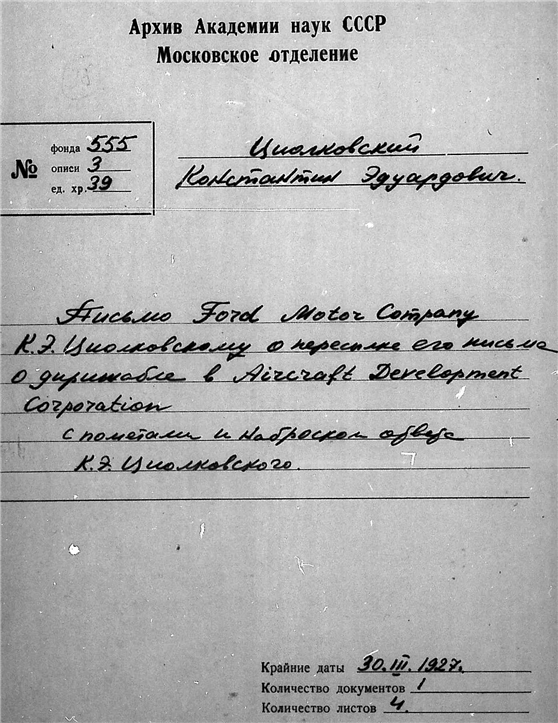 Архив Академии наук СССР
Московское отделение
№
фонда 555
описи 3
ед. хр. 39
Циолковский
Константин Эдуардович.
Письмо Ford Motor Company
К.Э. Циолковскому о пересылке его письма
о дирижабле в Aircraft Development
Corporation
с пометами и наброском ответа
К.Э. Циолковского.
Крайние даты 30.III.1927.
Количество документов 1
Количество листов 4.